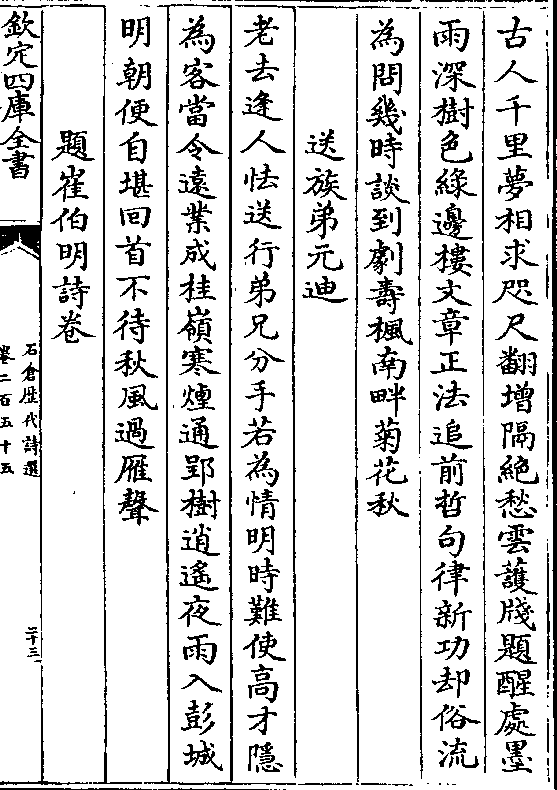 古人千里夢相求咫尺翻增隔絶愁雲護牋題醒處墨
雨深樹色綠邊樓文章正法追前哲句律新功却俗流
為問幾時談到劇壽楓南畔菊花秋
送族弟元迪
老去逢人怯送行弟兄分手若為情明時難使高才隱
為客當令遠業成桂嶺寒煙通郢樹逍遙夜雨入彭城
明朝便自堪回首不待秋風過雁聲
題崔伯明詩卷
欽定四庫全書
石倉歴代詩選
卷二百五十五
二十三